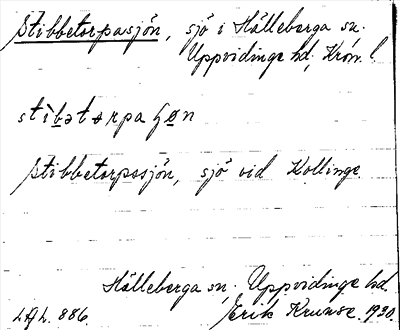 Stibbetorpasjön, sjö i Hälleberga sn.
Uppvidinge hd, Kron. l
stìbatorpa ʃøn
Stibbetorpasjön, sjö vid Kollinge.
Hälleberga sn, Uppvidinge hd
LAL. 886. Erik Krusse. 1930.